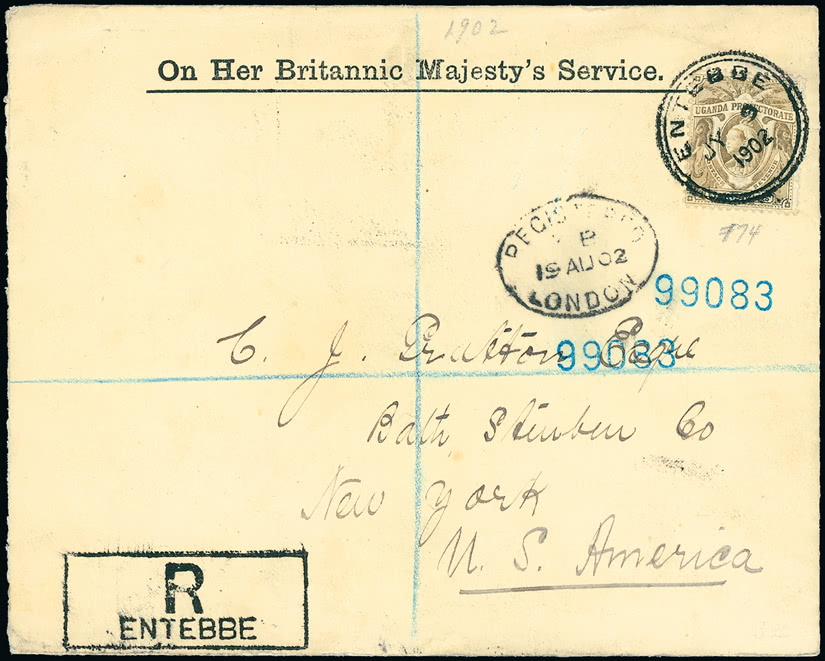 1902
On Her Britannic Majesty's Service.
ENTEBBE
JY 9
1902
UGANDA PROTECTORATE
774
REGISTERED
B
19 AU 02
LONDON
99083
C. J. Pratton
99083
Bath Steuben Co
New York
U. S. America
R
ENTEBBE